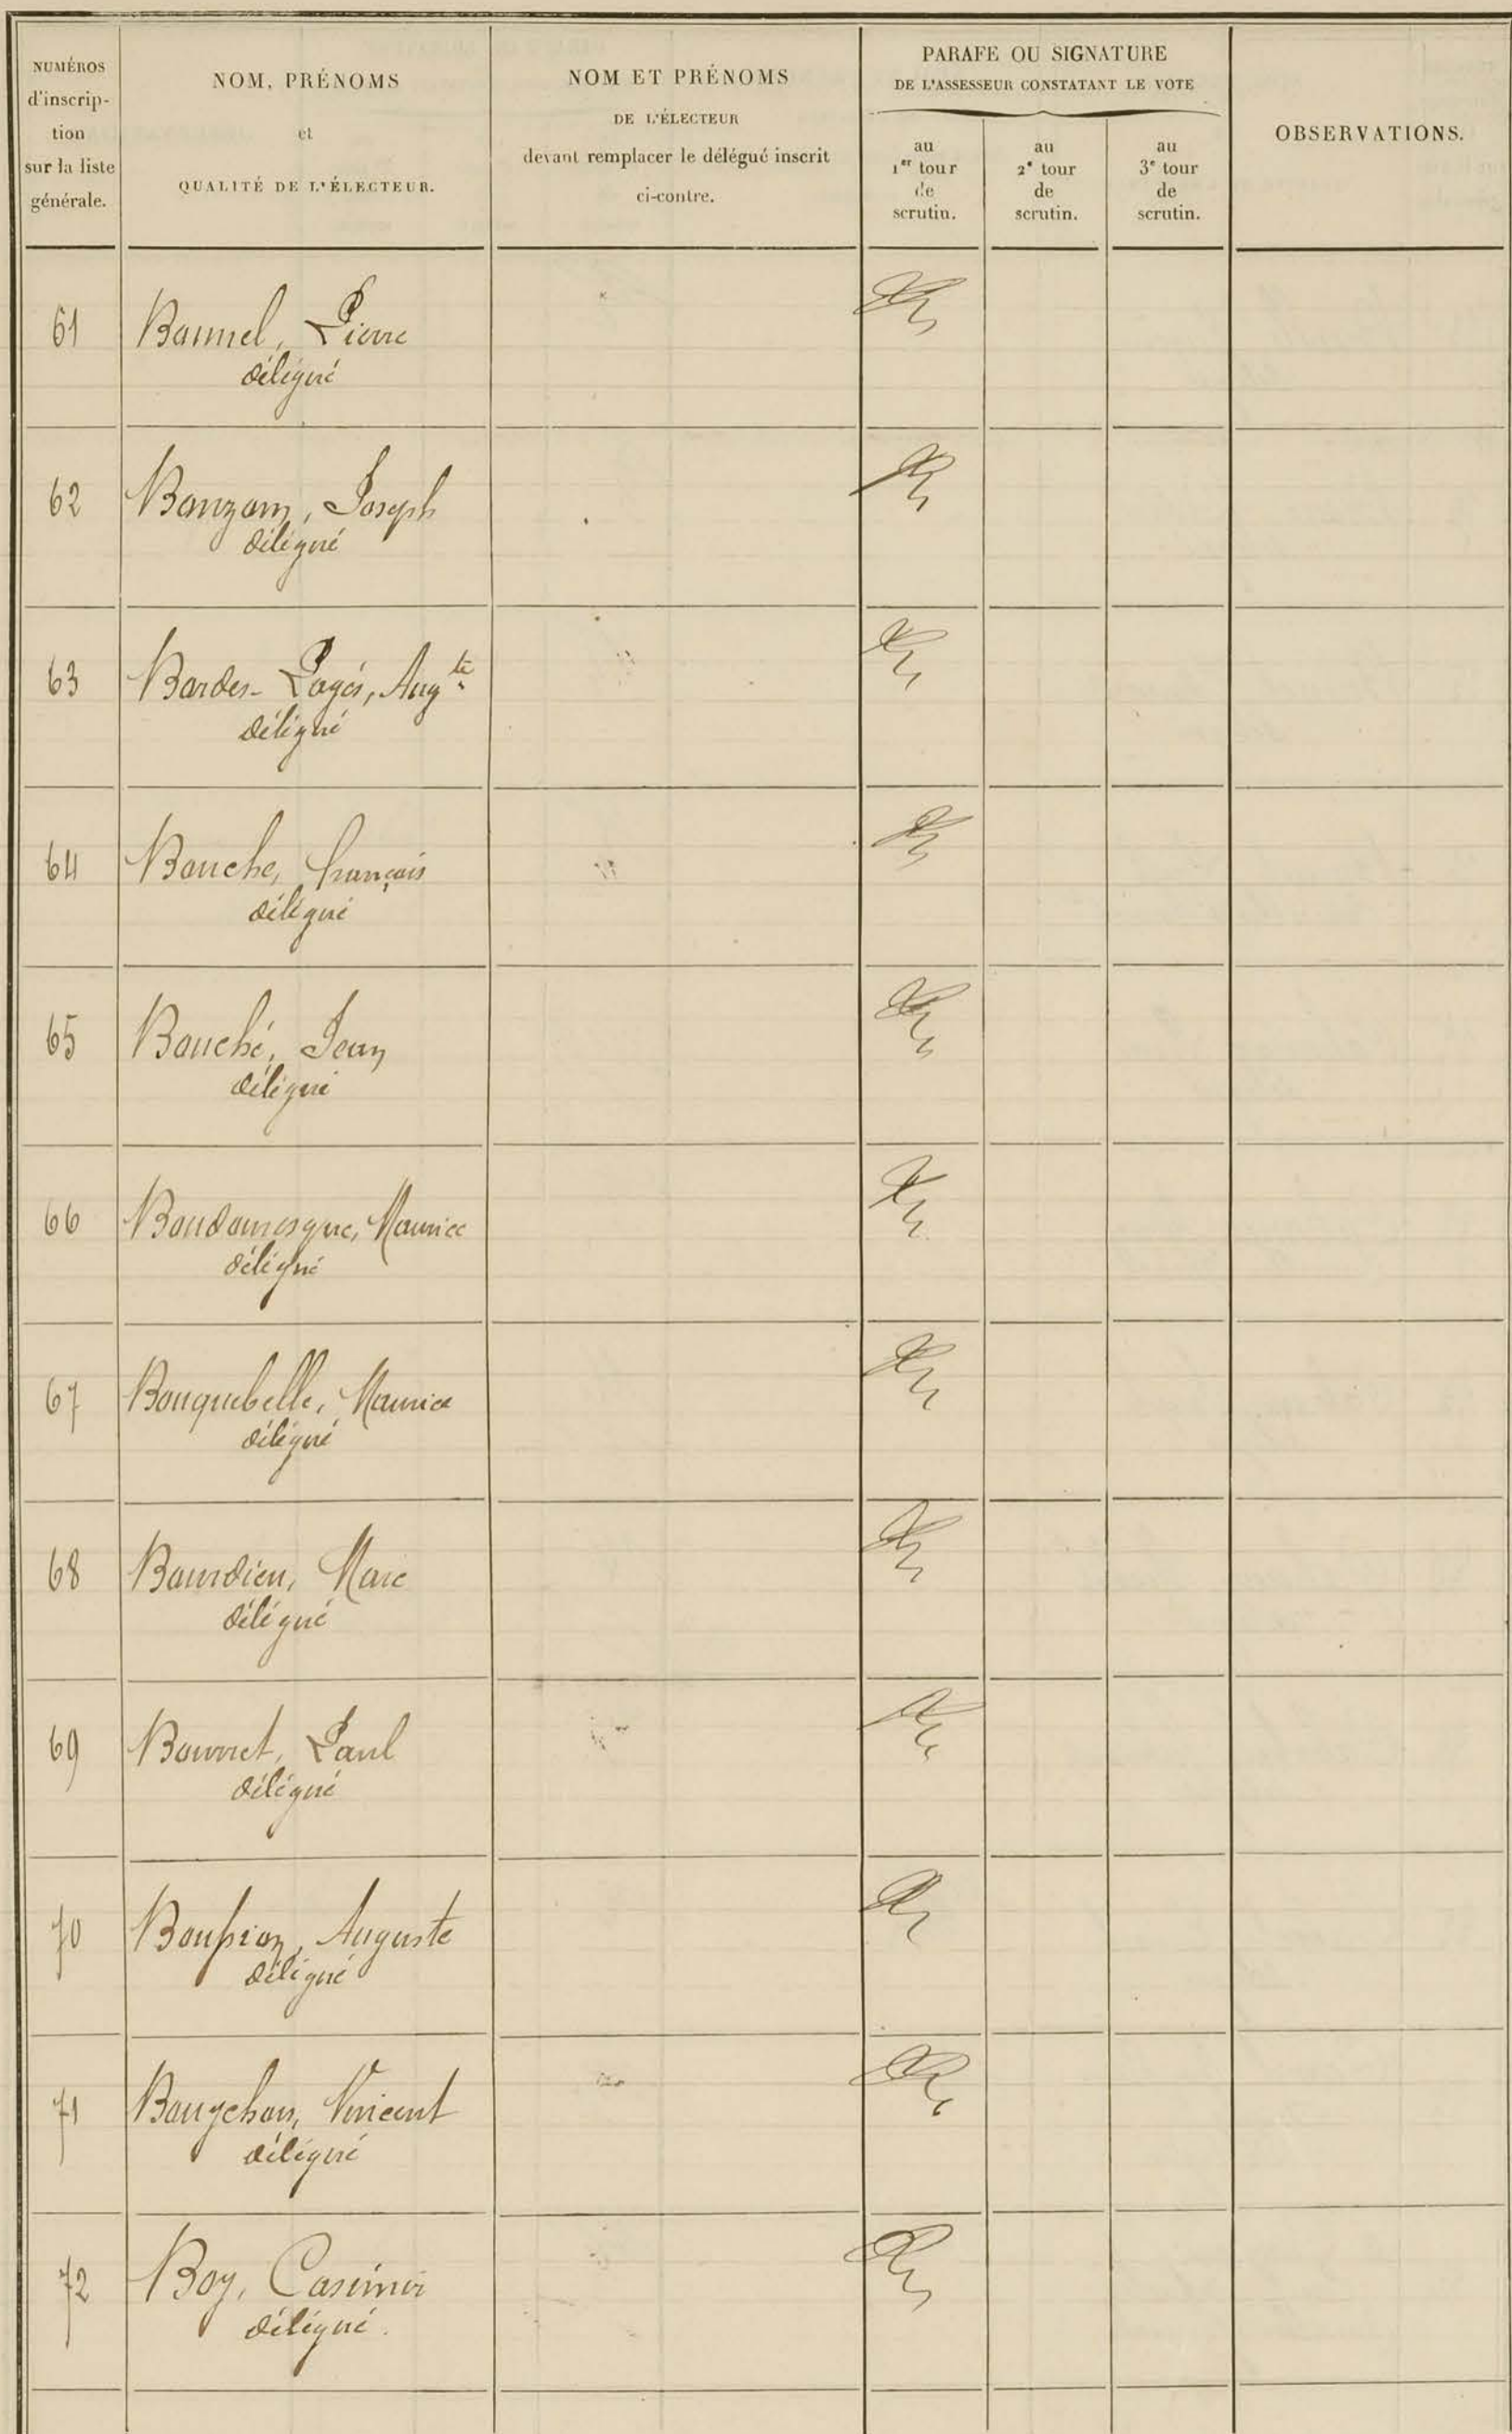 NUMÉROS
d'inscrip-
tion
sur la liste
générale.
NOM, PRÉNOMS
et
QUALITÉ DE L'ÉLECTEUR.
NOM ET PRÉNOMS
DE L'ÉLECTEUR
devant remplacer le délégué inscrit
ci-contre.
PARAFE OU SIGNATURE
DE L'ASSESSEUR CONSTATANT LE VOTE
au
1er tour
de
scrutin.
au
2e tour
de
scrutin.
au
3e tour
de
scrutin.
OBSERVATIONS.
61 Bonnel, Pierre
délégué
62 Bonzom, Joseph
délégué
63 Bordes-Pagès, Augte
délégué
64 Bouche, François
délégué
65 Bouché, Jean
délégué
66 Boudomesque, Maurice
délégué
67 Bouquebelle, Maurice
délégué
68 Bourdieu, Marc
délégué
69 Bourret, Paul
délégué
70 Auguste
délégué
71 Vincent
délégué
72 Boy, Casimir
délégué.